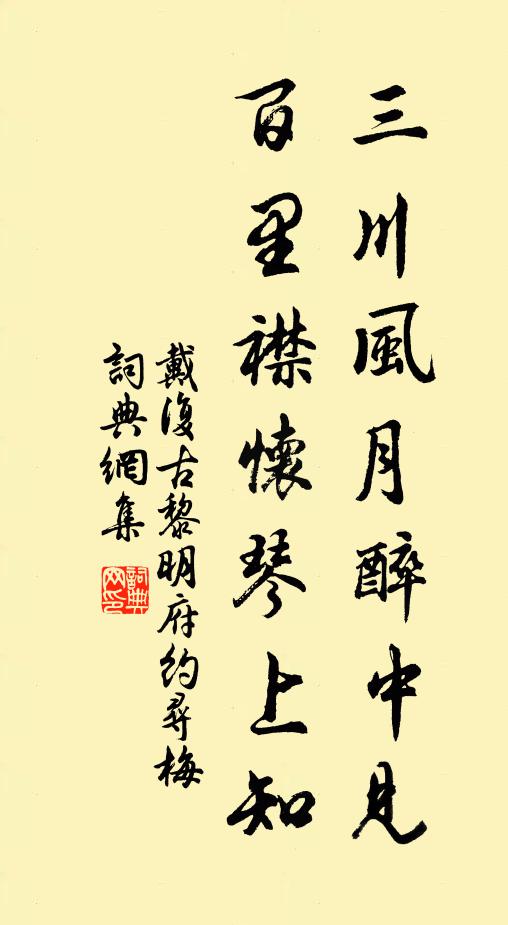 三川風月醉中見
百里襟懷琴上知
戴復古黎明府約尋梅
詞典網集
詞典网印